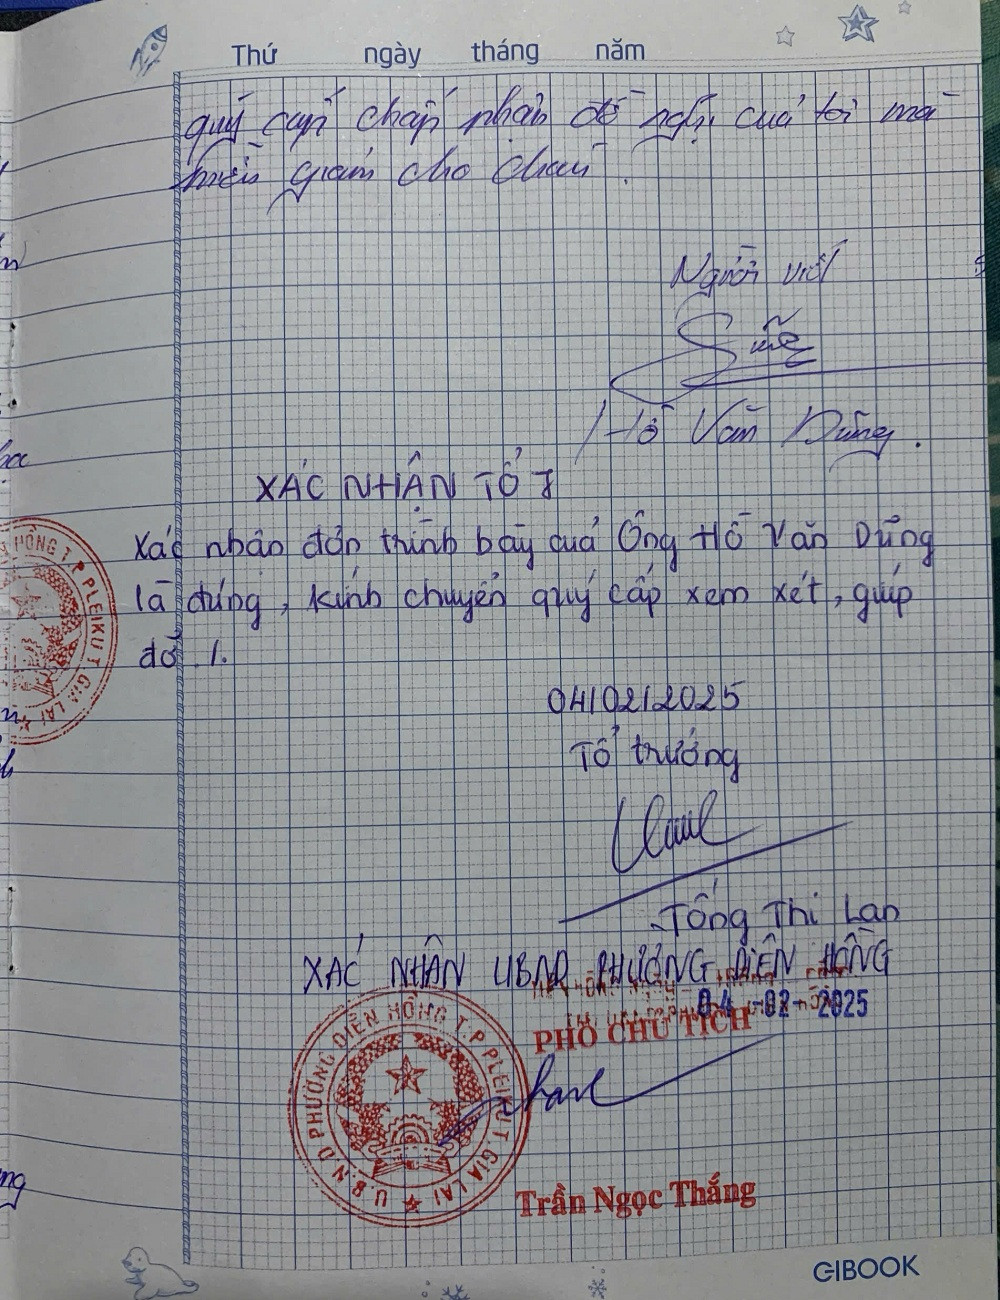 Thứ ngày tháng năm
quý cấp chấp nhận đề nghị của tôi mà
miễn giảm cho cháu.
Người viết
Hồ Văn Dũng.
XÁC NHẬN TỔ 7
Xác nhận đơn trình bày của Ông Hồ Văn Dũng
là đúng, kính chuyển quý cấp xem xét, giúp
đỡ ./.
04/02/2025
Tổ trưởng
Tống Thị Lan
XÁC NHẬN UBND PHƯỜNG DIÊN HỒNG
04 -02- 2025
PHÓ CHỦ TỊCH
U.B.N.D PHƯỜNG DIÊN HỒNG T.P PLEIKU T. GIA LAI
Trần Ngọc Thắng
HỒNG T.P PLEIKU T. GIA LAI
GIBOOK